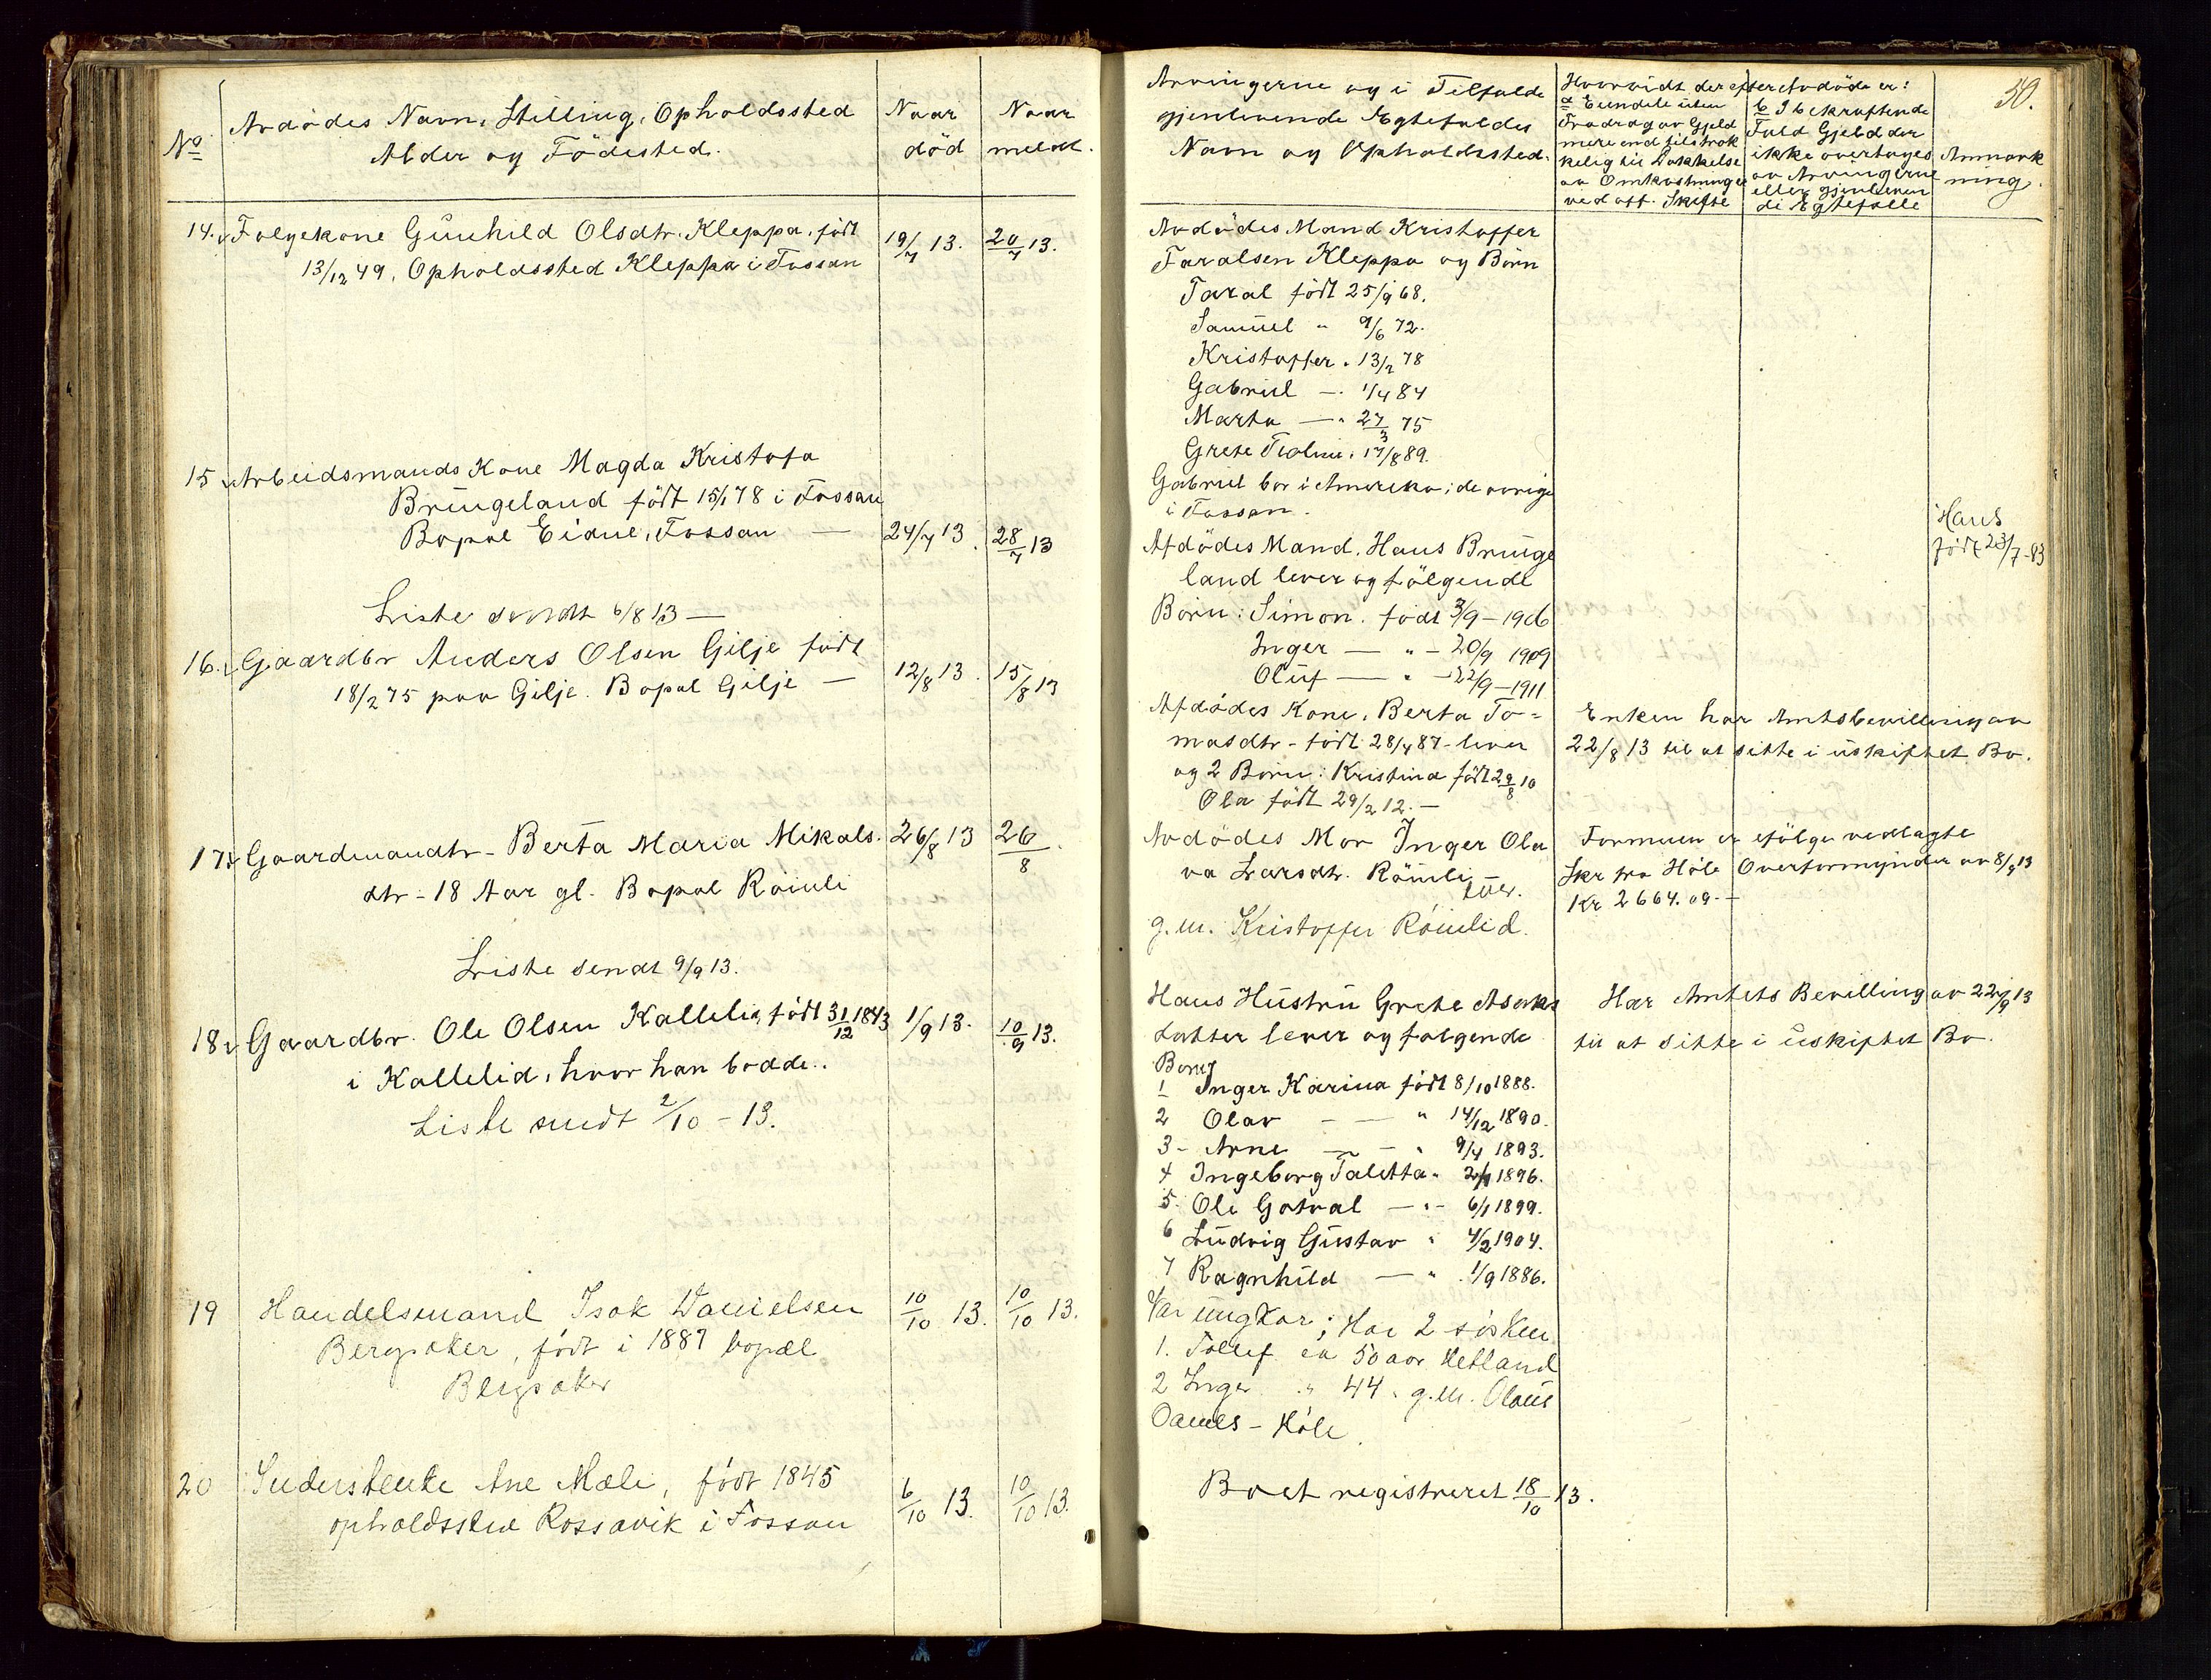 No
Avdödes Navn, Stilling, Opholdssted
Alder og Födested.
Naar
död
Naar
meldt.
14. Folgekone Gunhild Olsdtr. Kleppa, födt
13/12 49, Opholdssted Kleppa i Fossan
19/7 13.
20/7 13.
15 Arbeidsmands Kone Magda Kristofa
Brungeland födt 15/1 78 i Fossan
Bopæl Eidne, Fossan —
24/7 13
28/7 13
Liste sendt 6/8 13 —
16. Gaardbr Anders Olsen Gilje födt
18/2 75 paa Gilje. Bopæl Gilje —
12/8 13.
15/8 13
17. Gaardmandtr - Berta Maria Mikals.
dtr - 18 Aar gl. Bopæl Röiuli
26/8 13
26/8
Liste sendt 9/9 13.
18. Gaardbr. Ole Olsen Kallelid, födt 31/12 1843
i Kallelid, hvor han bodde..
1/9 13.
10/9 13.
Liste sendt 2/10 - 13.
19 Handelsmand Isak Danielsen
Bergsaker, födt i 1887 bopæl
Bergsaker
10/10 13.
10/10 13.
20 Inderstenke Ane Mæle, födt 1845
opholdssted Rossavik i Fossan
6/10 13.
10/10 13.
50.
Arvingerne og i Tilfælde
gjenlevende Egtefælles
Navn og Opholdssted.
Hvorvidt der efter Avdöde er:
a Eiendele uten
Fradrag av Gjeld
mere end tilstræk
kelig til Dækkelse
av Omkostninger
ved off. Skifte
b I bekræftende
Fald Gjeld der
ikke overtages
av Arvingerne
eller gjenleven
de Egtefælle
Anmærk
ning.
Avdödes Mand Kristoffer
Taralsen Kleppa og Börn
Taral födt 25/9 68.
Samuel " 9/6 72.
Kristoffer " 13/2 78
Gabriel — " 1/4 84
Marta — " 27/3 75
Grete " 17/8 89.
Gabriel bor i Amerika; de övrige
i Fossan.
Afdödes Mand, Hans Brunge
land lever og fölgende
Börn: Simon. födt 3/9 - 1906
Inger — " - 20/9 1909
Oluf — " - 22/9 - 1911
Hans
födt 23/7 - 83
Afdödes Kone, Berta To=
masdtr - födt 28/4 87 - lever
og 2 Börn: Kristina födt 29/8 10
Ola födt 29/2 12. —
Enken har Amtsbevilling av
22/8 13 til at sitte i uskiftet Bo.
Avdödes Mor Inger Ola
va Larsdtr. Röiuli
lever.
g. m. Kristoffer Röiulid.
Formuen er efölge vedlagte
Skr fra Höle Overformynderi av 8/9 13
Kr 2664.09. —
Hans Hustru Grete Asaks
datter lever og fölgende
Börn
1 Inger Karina födt 8/10 1888.
2 Olav — — " 14/12 1890.
3 - Arne — - " 9/4 1893.
4 Ingeborg Taletta " 2/9 1896.
5. Ole Gotval — " - 6/1 1899.
6 Ludvig Gustav " 4/2 1904.
7 Ragnhild — " 1/9 1886.
Har Amtets Bevilling av 22/9 13
til at sitte i uskiftet Bo.
Var ungkar; Har 2 sösken
1. Tollef ca 50 aar Hetland
2 Inger " 44 " g.m. Olaus
Oanes - Höle.
Boet registreret 18/10 13.